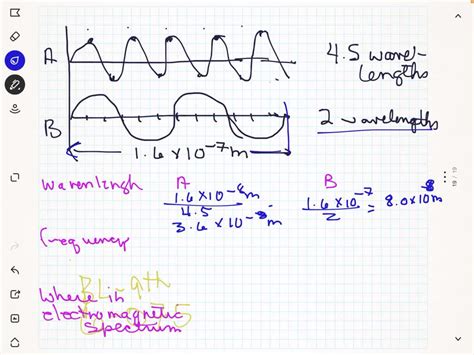 A
4.5 wavel-
lengths
B
2 wavelengths
1.6 x 10⁻⁷ m
wavenlingh A B
1.6 x 10⁻⁸ m
4.5
3.6 x 10⁻⁸ m
1.6 x 10⁻⁷
2
= 8.0 x 10⁻⁸ m
frequency
Where in
electromagnetic
spectrum